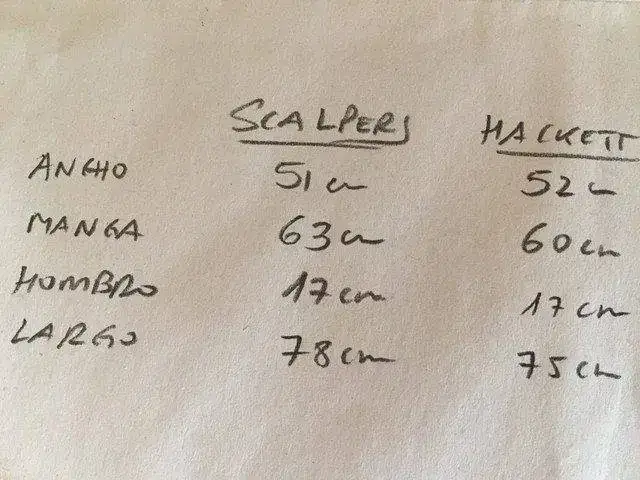 SCALPERS HACKETT
ANCHO 51 cm 52 cm
MANGA 63 cm 60 cm
HOMBRO 17 cm 17 cm
LARGO 78 cm 75 cm